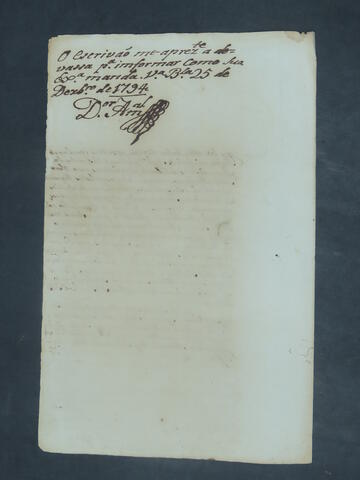 O Escrivão me aprezte a de-
vassa pa. informar como Sua
Exa. manda. Va. Bla 25 de
Dezbro. de 1794
Dor.